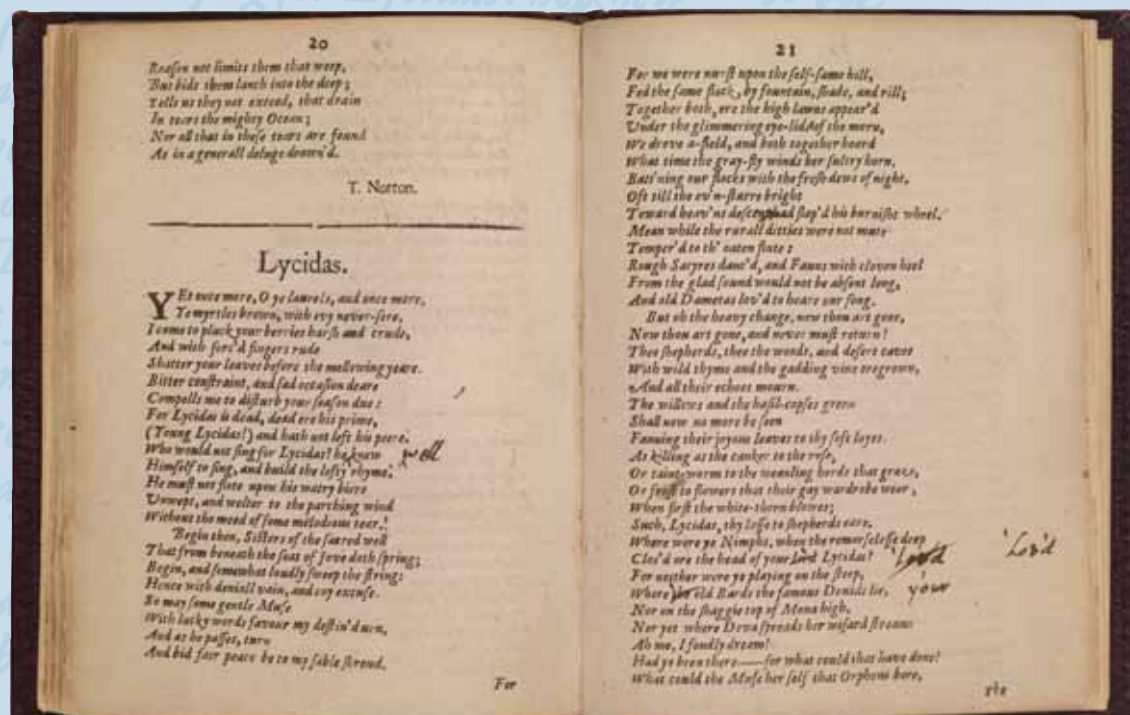 20
Reaſon not limits them that weep,
But bids them lanch into the deep;
Tells us they not exceed, that drain
In tears the mighty Ocean;
Nor all that in theſe tears are found
As in a generall deluge drown'd.
T. Norton.
Lycidas.
YEt once more, O ye laurels, and once more,
Ye myrtles brown, with ivy never-ſere,
I come to pluck your berries harſh and crude,
And with forc'd fingers rude
Shatter your leaves before the mellowing yeare.
Bitter conſtraint, and ſad occaſion deare
Compells me to diſturb your ſeaſon due:
For Lycidas is dead, dead ere his prime,
(Young Lycidas!) and hath not left his peere.
Who would not ſing for Lycidas? he knew well
Himſelf to ſing, and build the lofty rhyme.
He muſt not flote upon his watry biere
Unwept, and welter to the parching wind
Without the meed of ſome melodious tear.
Begin then, Siſters of the ſacred well
That from beneath the ſeat of Jove doth ſpring;
Begin, and ſomewhat loudly ſweep the ſtring:
Hence with deniall vain, and coy excuſe.
So may ſome gentle Muſe
With lucky words favour my deſtin'd urn,
And as he paſſes, turn
And bid fair peace be to my ſable ſhroud.
For
21
For we were nurſt upon the ſelf-ſame hill,
Fed the ſame flock, by fountain, ſhade, and rill;
Together both, ere the high lawns appear'd
Under the glimmering eye-lids of the morn,
We drove a-field, and both together heard
What time the gray-fly winds her ſultry horn,
Batt'ning our flocks with the freſh dews of night,
Oft till the ev'n-ſtarre bright
Toward heav'ns deſcent had ſlop'd his burniſht wheel.
Mean while the rurall ditties were not mute
Temper'd to th' oaten flute:
Rough Satyres danc'd, and Fauns with cloven heel
From the glad ſound would not be abſent long,
And old Dametas lov'd to heare our ſong.
But oh the heavy change, now thou art gone,
Now thou art gone, and never muſt return!
Thee ſhepherds, thee the woods, and deſert caves
With wild thyme and the gadding vine oregrown,
And all their echoes mourn.
The willows and the haſil-copſes green
Shall now no more be ſeen
Fanning their joyous leaves to thy ſoft layes.
As killing as the canker to the roſe,
Or taint-worm to the weanling herds that graze,
Or froſt to flowers that their gay wardrobe wear,
When firſt the white-thorn blowes;
Such, Lycidas, thy loſſe to ſhepherds eare.
Where were ye Nimphs, when the remorſeleſſe deep
Clos'd ore the head of your Lycidas? Lov'd
For neither were ye playing on the ſteep,
Where old Bards the famous Druids lie, your
Nor on the ſhaggie top of Mona high,
Nor yet where Deva ſpreads her wiſard ſtream:
Ah me, I fondly dream!
Had ye been there——for what could that have done?
What could the Muſe her ſelf that Orpheus bore,
The